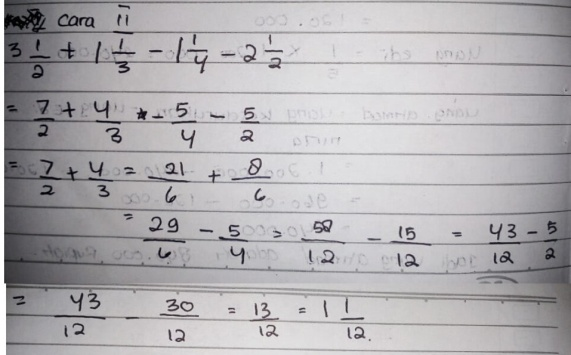 cara II
3 1/2 + 1 1/3 - 1 1/4 - 2 1/2
= 7/2 + 4/3 - 5/4 - 5/2
= 7/2 + 4/3 = 21/6 + 8/6
= 29/6 - 5/4 = 58/12 - 15/12 = 43/12 - 5/2
= 43/12 - 30/12 = 13/12 = 1 1/12.